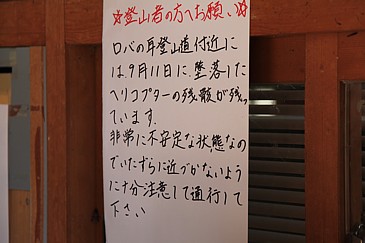 ☆登山者の方へお願い☆
ロバの耳登山道付近に
は9月11日に墜落した
ヘリコプターの残骸が残っ
ています.
非常に不安定な状態なの
でいたずらに近づかないよう
に十分注意して通行して
下さい